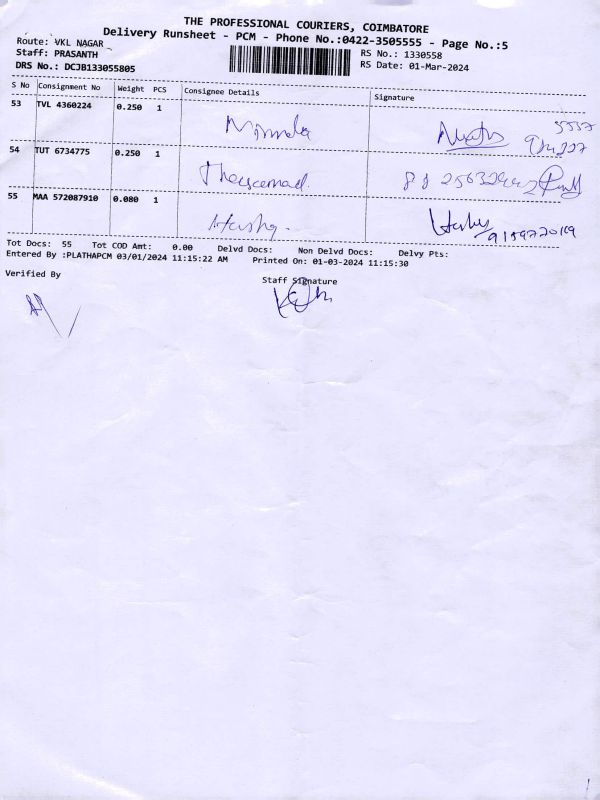 THE PROFESSIONAL COURIERS, COIMBATORE
Delivery Runsheet - PCM - Phone No.:0422-3505555 - Page No.:5
Route: VKL NAGAR RS No.: 1330558
Staff: PRASANTH RS Date: 01-Mar-2024
DRS No.: DCJB133055805
S No Consignment No Weight PCS Consignee Details Signature
53 TVL 4360224 0.250 1
54 TUT 6734775 0.250 1
55 MAA 572087910 0.080 1 Harsha
Tot Docs: 55 Tot COD Amt: 0.00 Delvd Docs: Non Delvd Docs: Delvy Pts:
Entered By :PLATHAPCM 03/01/2024 11:15:22 AM Printed On: 01-03-2024 11:15:30
Verified By Staff Signature